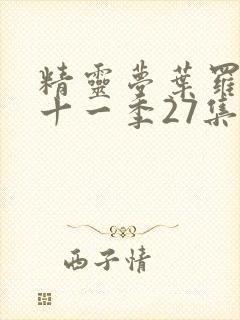 精靈夢葉羅
十一季27集
西子情